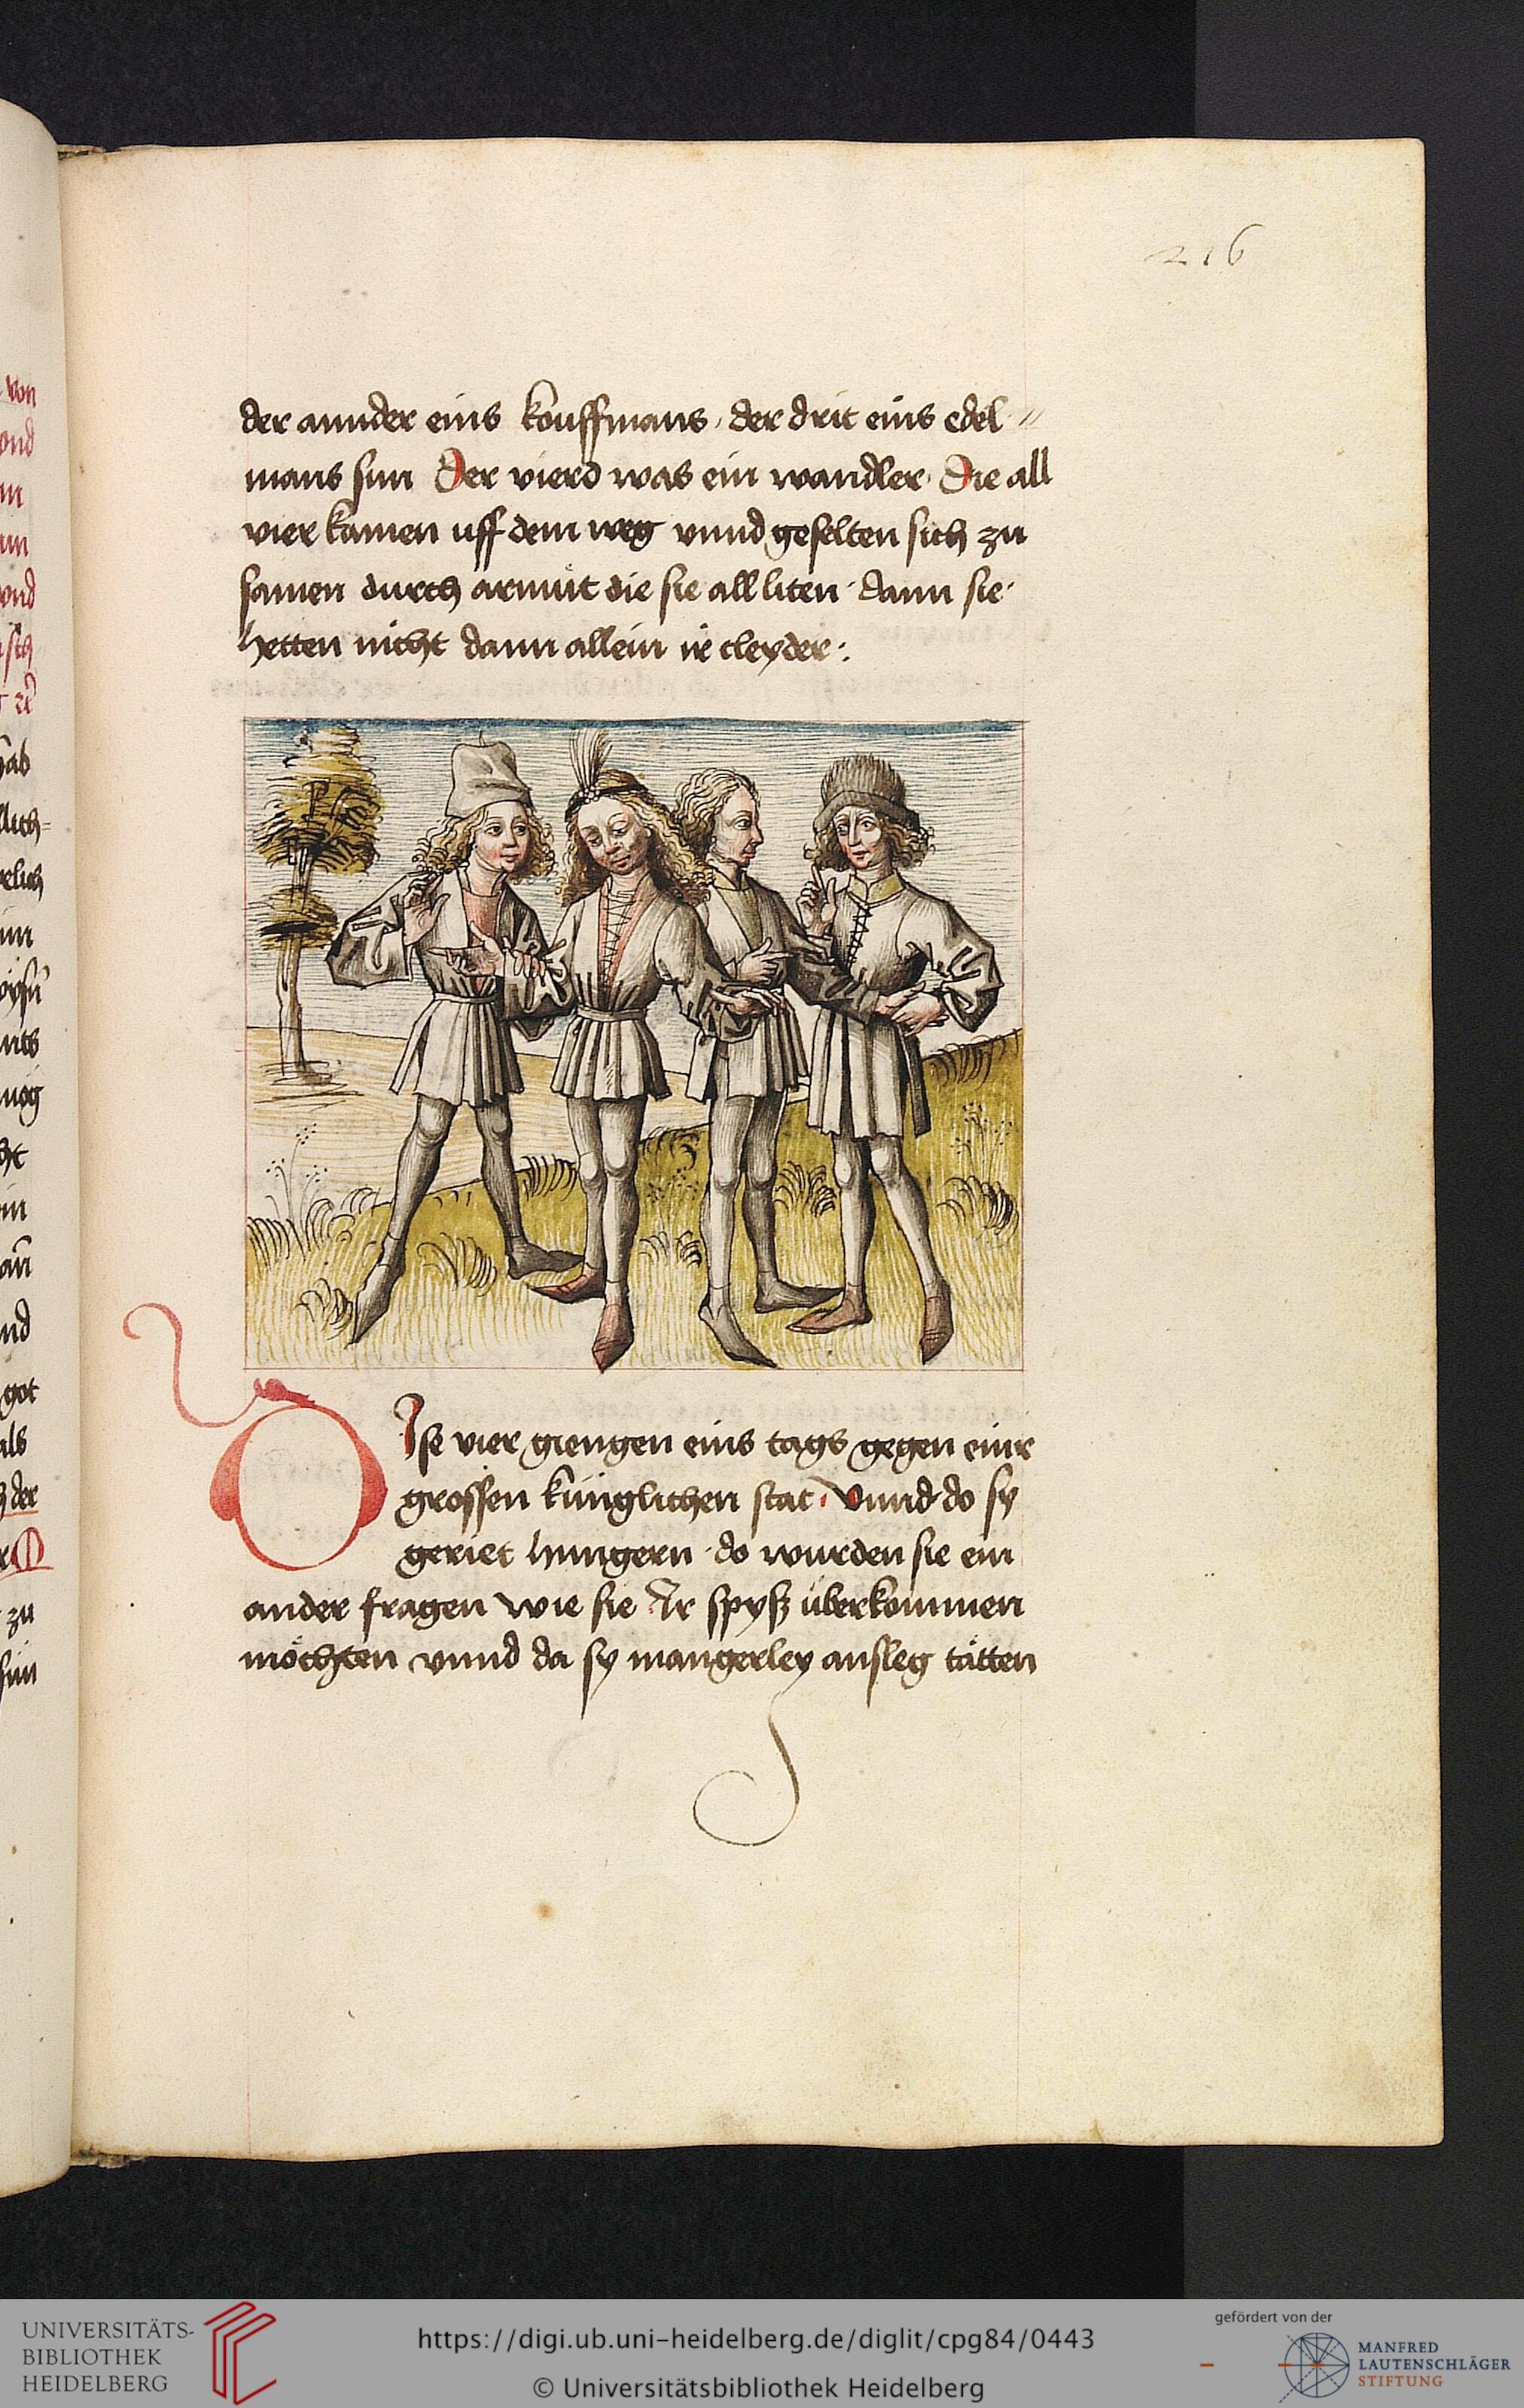 216
der annder eins kouffmans · der drit eins edel //
mans sun Der vierd was ein wandler · Die all
vier kamen uff dem weg vnnd geselten sich zu
samen durch armut die sie all liten · dann sie ·
hetten nicht dann allein ir cleyder :·
DIse vier giengen eins tags gegen einr
grossen küniglichen stat · Vnnd do sy
geriet hungern · do wurden sie ein
ander fragen wie sie Ir spysz überkommen
möchten vnnd da sy mangerley ansleg tätten
von
vnd
hab
lich=
got
als
der
zu
sun
UNIVERSITÄTS-
BIBLIOTHEK
HEIDELBERG
https://digi.ub.uni-heidelberg.de/diglit/cpg84/0443
© Universitätsbibliothek Heidelberg
gefördert von der
MANFRED
LAUTENSCHLÄGER
STIFTUNG